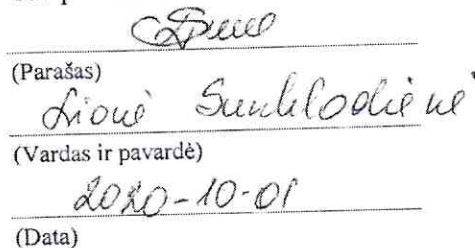 (Parašas)
Sunklodienė
(Vardas ir pavardė)
2020-10-01
(Data)